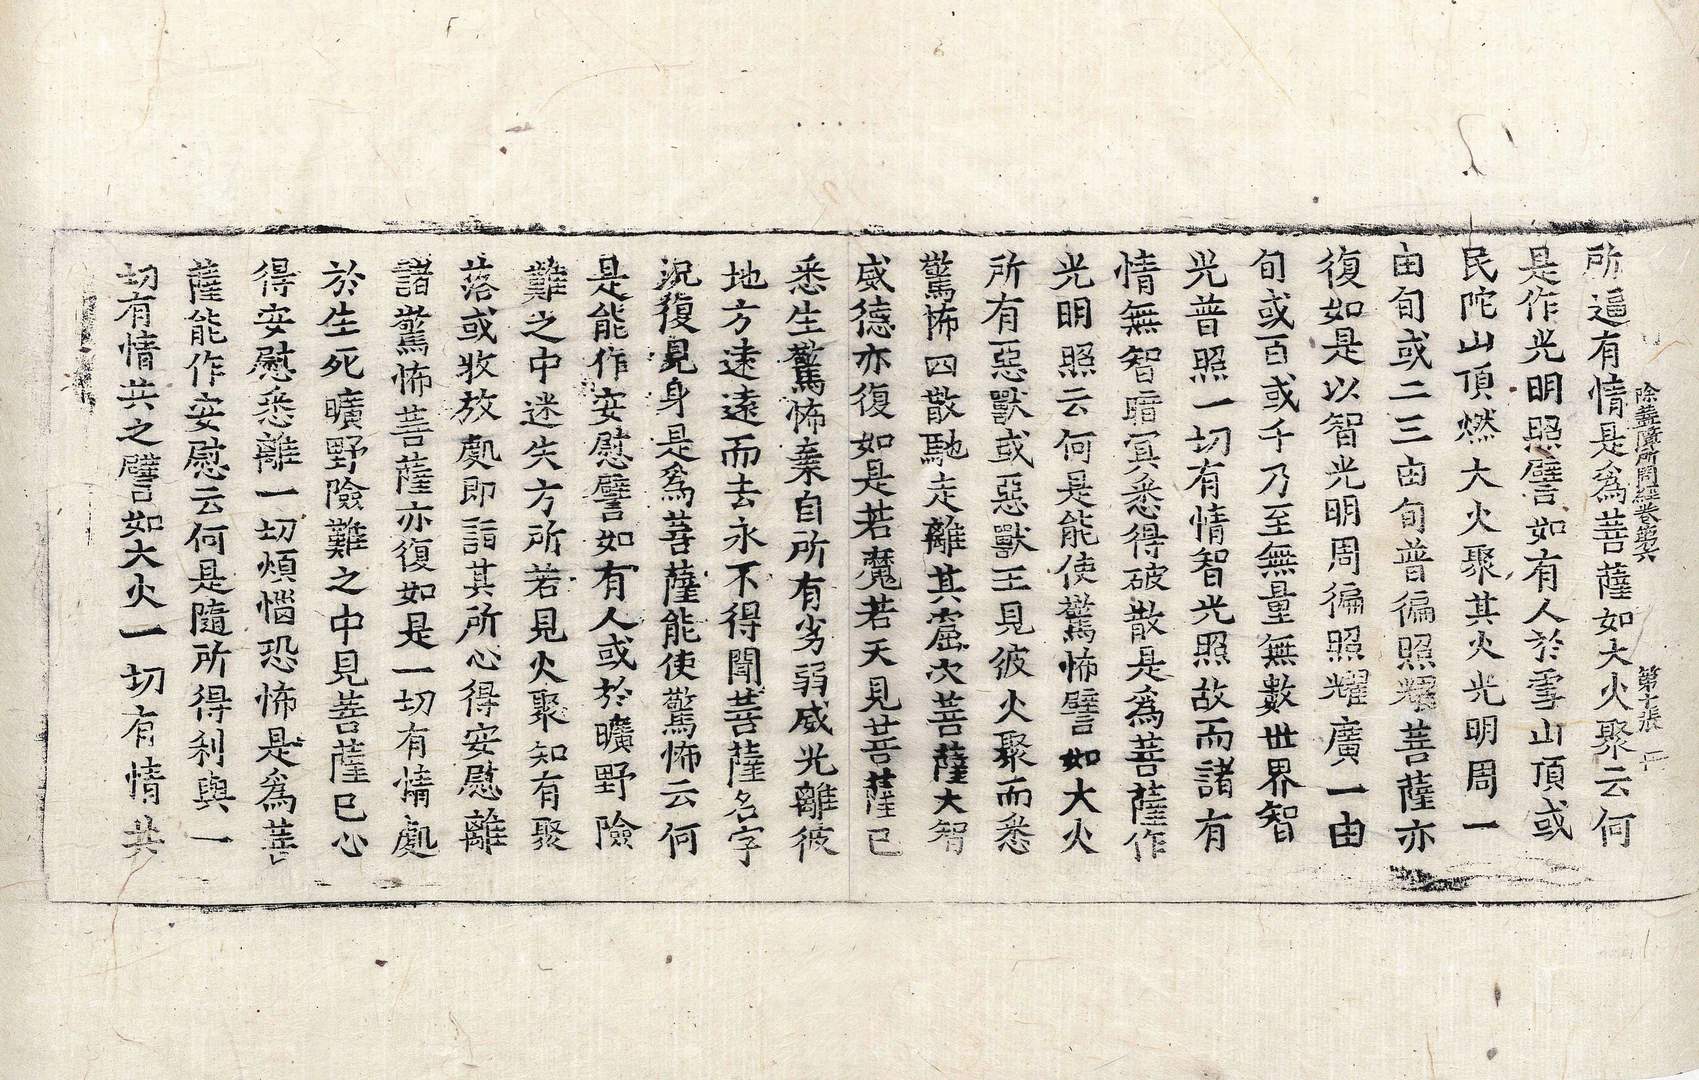 除蓋障所問經卷第六 第十張
所逼有情是爲菩薩如大火聚云何
是作光明照譬如有人於雪山頂或
民陀山頂燃大火聚其火光明周一
由旬或二三由旬普徧照耀菩薩亦
復如是以智光明周徧照耀廣一由
旬或百或千乃至無量無數世界智
光普照一切有情智光照故而諸有
情無智暗冥悉得破散是爲菩薩作
光明照云何是能使驚怖譬如大火
所有惡獸或惡獸王見彼火聚而悉
驚怖四散馳走離其窟穴菩薩大智
威德亦復如是若魔若天見菩薩已
悉生驚怖棄自所有劣弱威光離彼
地方速遠而去永不得聞菩薩名字
況復見身是爲菩薩能使驚怖云何
是能作安慰譬如有人或於曠野險
難之中迷失方所若見火聚知有聚
落或牧放處即詣其所心得安慰離
諸驚怖菩薩亦復如是一切有情處
於生死曠野險難之中見菩薩已心
得安慰悉離一切煩惱恐怖是爲菩
薩能作安慰云何是隨所得利與一
切有情共之譬如大火一切有情共